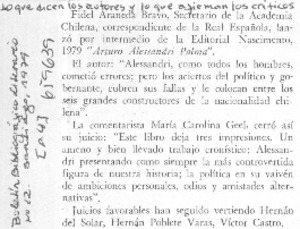 Lo que dicen los autores y lo que afirman los críticos
Fidel Araneda Bravo, Secretario de la Academia
Chilena, correspondiente de la Real Española, lan-
zó por intermedio de la Editorial Nascimento,
1979 "Arturo Alessandri Palma".
El autor: "Alessandri, como todos los hombres,
cometió errores; pero los aciertos del político y go-
bernante, cubren sus fallas y le colocan entre los
seis grandes constructores de la nacionalidad chi-
lena".
La comentarista María Carolina Geel, cerró así
su juicio: "Este libro deja tres impresiones. Un
ameno y bien llevado trabajo cronístico; Alessan-
dri presentando como siempre la más controvertida
figura de nuestra historia; la política en su vaivén
de ambiciones personales, odios y amistades alter-
nativas".
Juicios favorables han seguido vertiendo Hernán
del Solar, Hernán Poblete Varas, Víctor Castro,
Boletín Bibliográfico Literario
no 12 Santiago, 1979
[a4] 619639